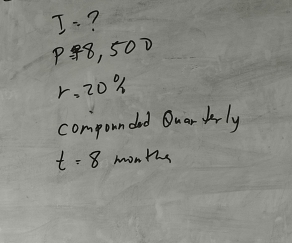 I = ?
P = 8,500
r = 20%
compounded Quarterly
t = 8 months